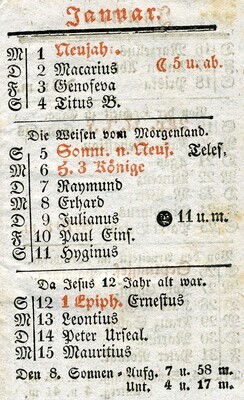 Januar.
M 1 Neujahr. ☾ 5 u. ab.
D 2 Macarius
F 3 Genofeva
S 4 Titus B.
Die Weisen vom Morgenland.
S 5 Sonnt. n. Neuj. Telesf.
M 6 H. 3 Könige
D 7 Raymund
M 8 Erhard
D 9 Julianus 11 u. m.
F 10 Paul Eins.
S 11 Hyginus
Da Jesus 12 Jahr alt war.
S 12 1 Epiph. Ernestus
M 13 Leontius
D 14 Peter Urseal.
M 15 Mauritius
Den 8. Sonnen-Aufg. 7 u. 58 m.
Unt. 4 u. 17 m.